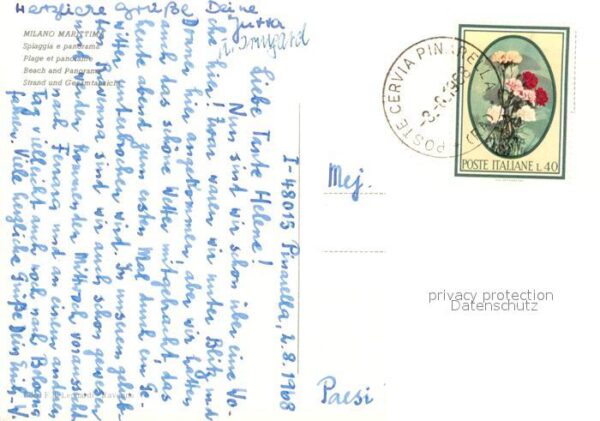 Herzliche Grüße Deine
Jutta
u. Irmgard
MILANO MARITTIMA
Spiaggia e panorama
Plage et panorama
Beach and Panorama
Strand und Gesamtansicht
I-48015 Pinarella, 2.8.1968
Liebe Tante Helene!
Nun sind wir schon über eine Wo-
che hier! Zwar waren wir unter Blitz und
Donner hier angekommen, aber wir hatten
auch das schöne Wetter mitgebracht, das
heute abend zum ersten Mal durch ein Ge-
witter unterbrochen wird. In unserem gelieb-
ten Ravenna sind wir auch schon gewesen
und werden kommenden Mittwoch voraussichtl.
mal Ferrara und an einem anderen
Tag vielleicht auch noch nach Bologna
fahren. Viele herzliche Grüße Dein Erich-V.
POSTE CERVIA PINARELLA
-8.1968
POSTE ITALIANE L.40
Mej.
Paesi
privacy protection
Datenschutz